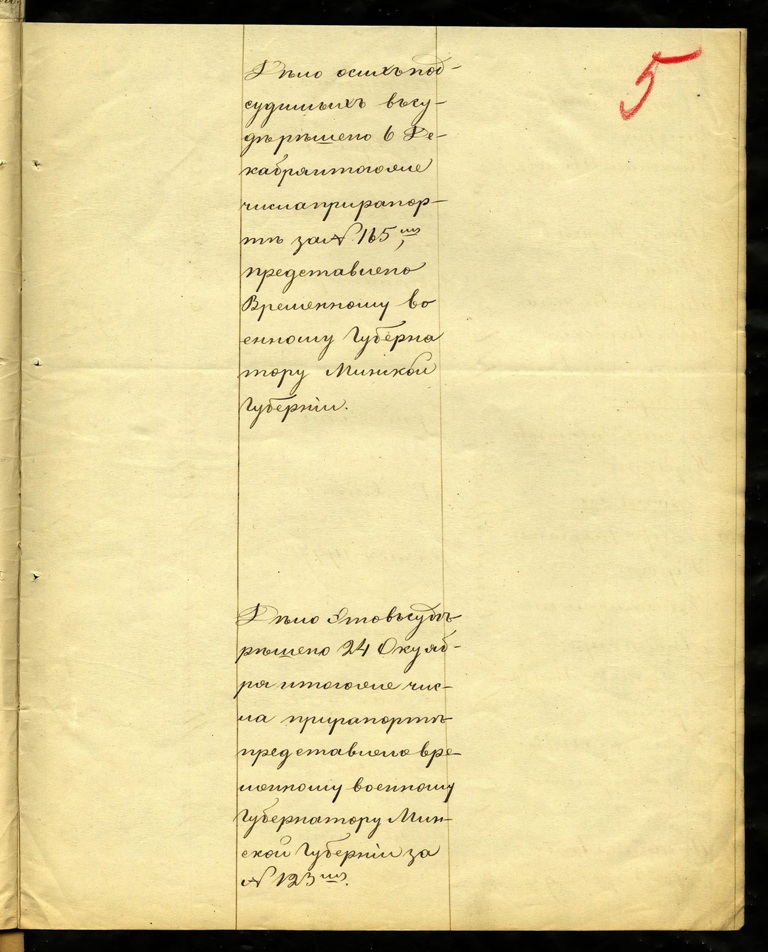 5
Дѣло осихъ под-
судимыхъ въсу-
дѣ рѣшено 6 Де-
кабря итогоже
числа при рапор-
тѣ за № 165мъ,
представлено
Временному во
енному Губерна
тору Минской
Губерніи.
Дѣло Это въ судѣ
рѣшено 24 Октяб-
ря итогоже чис-
ла при рапортѣ
представлено вре-
менному военному
Губернатору Мин-
ской Губерніи за
№ 123мъ.